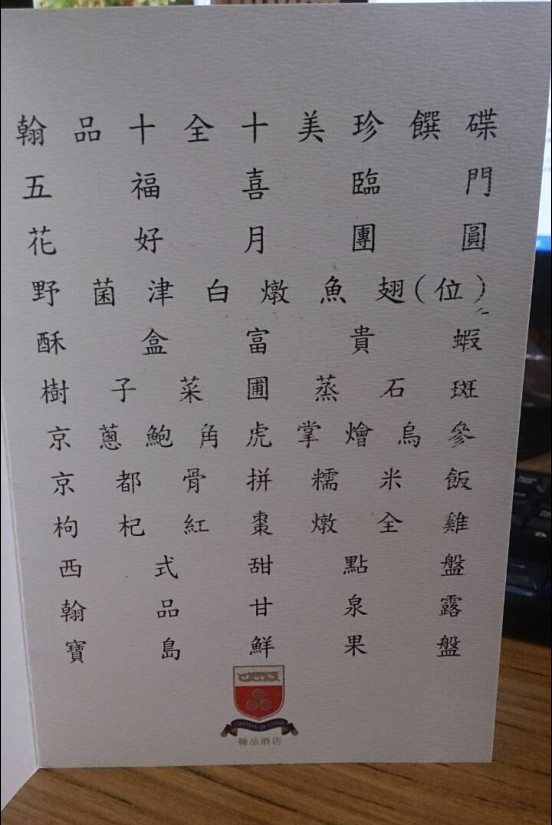 翰品十全十美珍饌碟
五福喜臨門
花好月團圓
野菌津白燉魚翅(位)
酥盒富貴蝦
樹子菜圃蒸石斑
京蔥鮑角虎掌燴烏參
京都骨拼糯米飯
枸杞紅棗燉全雞
西式甜點盤
翰品甘泉露
寶島鮮果盤
翰品酒店